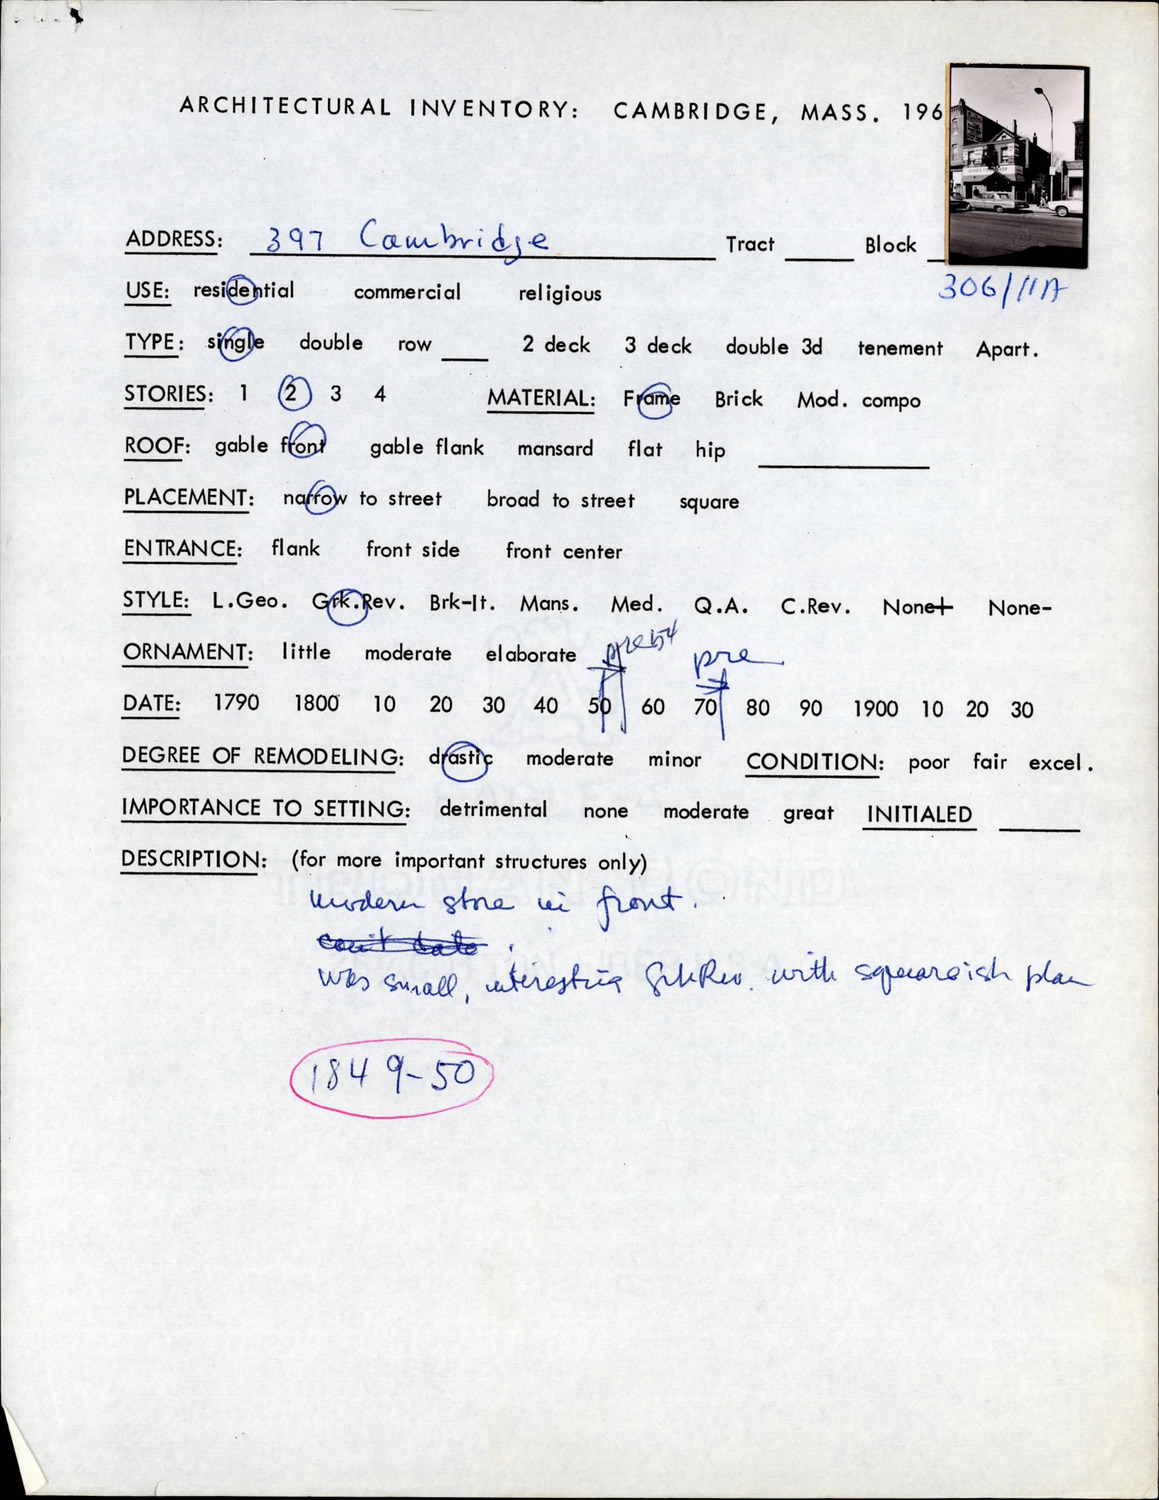 ARCHITECTURAL INVENTORY: CAMBRIDGE, MASS. 196
ADDRESS: 397 Cambridge Tract Block
306/11A
USE: residential commercial religious
TYPE: single double row 2 deck 3 deck double 3d tenement Apart.
STORIES: 1 2 3 4 MATERIAL: Frame Brick Mod. compo
ROOF: gable front gable flank mansard flat hip
PLACEMENT: narrow to street broad to street square
ENTRANCE: flank front side front center
STYLE: L.Geo. Grk.Rev. Brk-It. Mans. Med. Q.A. C.Rev. None+ None-
ORNAMENT: little moderate elaborate pre 54 pre
DATE: 1790 1800 10 20 30 40 50 60 70 80 90 1900 10 20 30
DEGREE OF REMODELING: drastic moderate minor CONDITION: poor fair excel.
IMPORTANCE TO SETTING: detrimental none moderate great INITIALED
DESCRIPTION: (for more important structures only)
modern store in front.
can't date
was small, interesting GrkRev. with squareish plan
1849-50